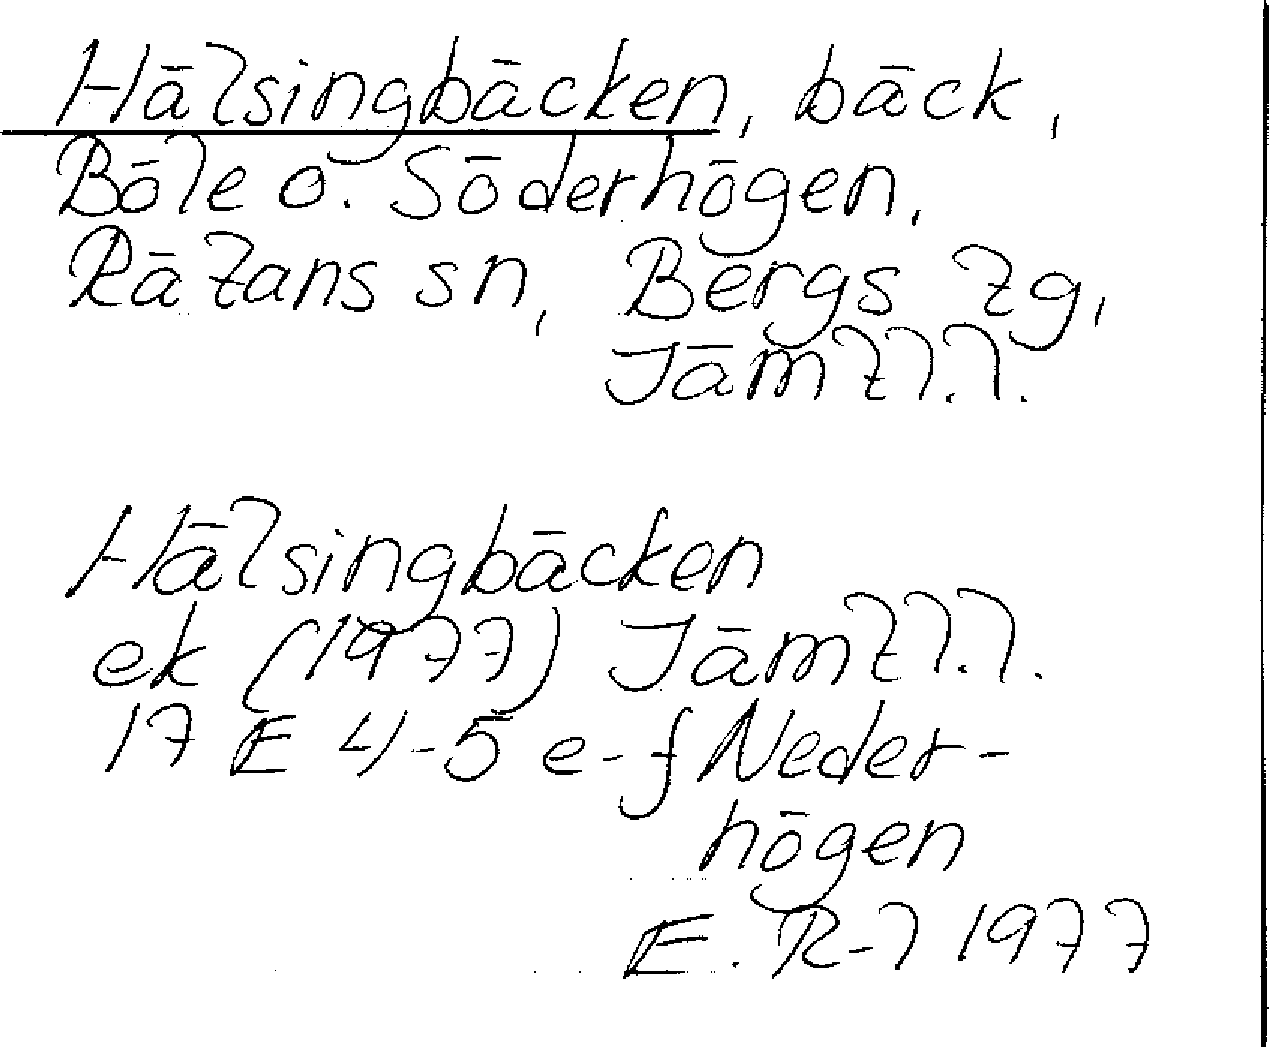 Hälsingbäcken, bäck,
Böle o. Söderhögen,
Rätans sn, Bergs tg,
Jämtl.l.
Hälsingbäcken
ek (1977) Jämtl.l.
17 E 4-5 e-f Neder-
högen
E. R-l 1977